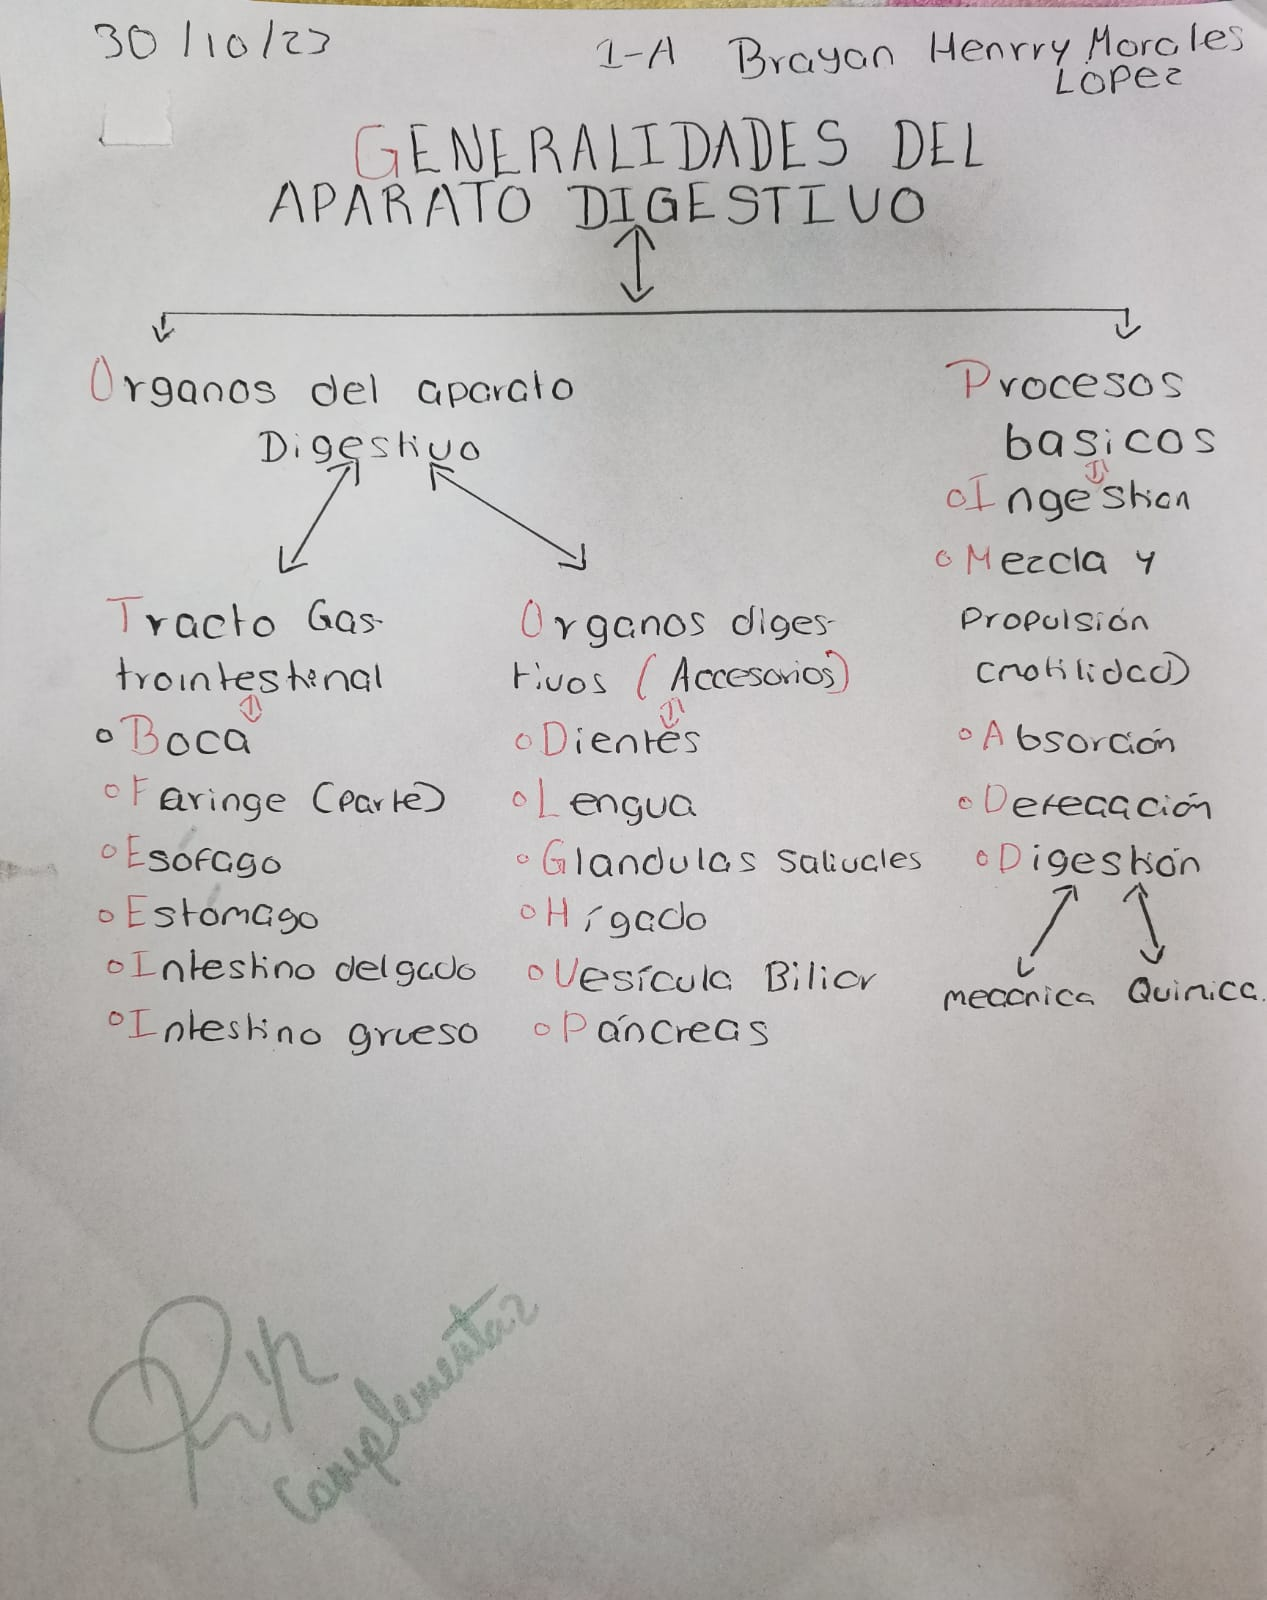 30/10/23
1-A Brayan Henrry Morales
LOPez
GENERALIDADES DEL
APARATO DIGESTIVO
Organos del aparato
Digestivo
Tracto Gas-
trointestinal
Boca
Faringe (Parte)
Esófago
Estómago
Intestino delgado
Intestino grueso
Organos diges-
tivos (Accesorios)
Dientes
Lengua
Glandulas Salivales
Hígado
Vesícula Biliar
Páncreas
Procesos
basicos
Ingestion
Mezcla y
Propulsión
(motilidad)
Absorción
Defecación
Digestión
mecanica Quimica.
Complementar